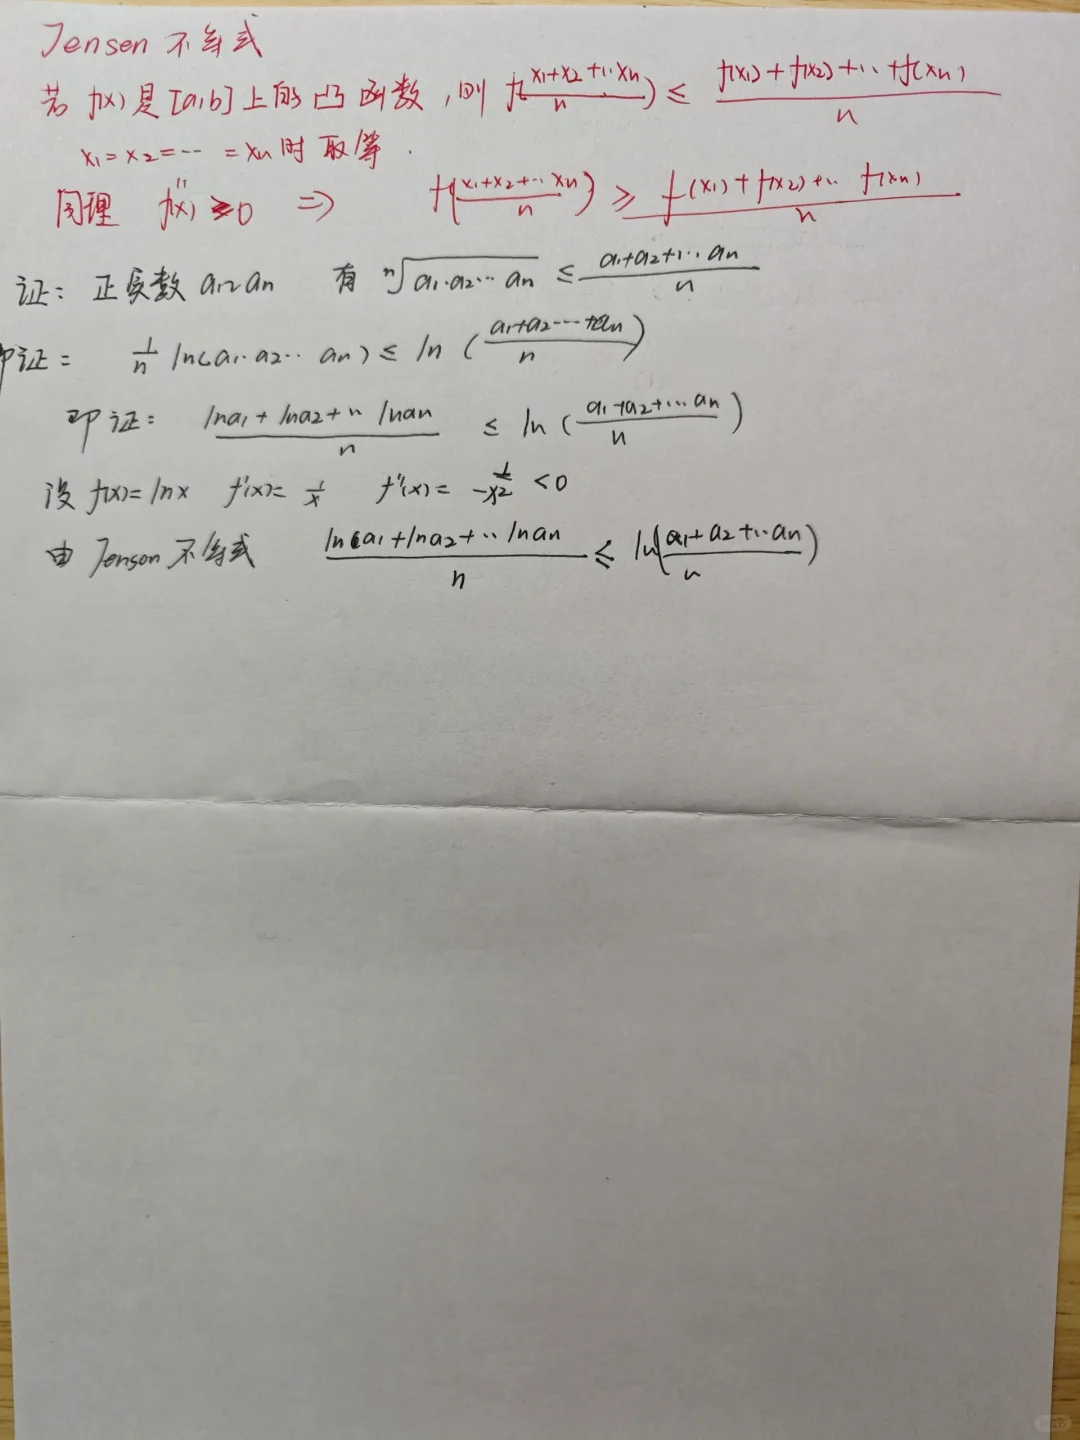 Jensen 不等式
若 f(x) 是 [a,b] 上的凸函数,则 f(\frac{x₁+x₂+…xₙ}{n}) ≤ \frac{f(x₁)+f(x₂)+…+f(xₙ)}{n}
x₁=x₂=…=xₙ时取等.
同理 f''(x)≥0 ⇒ f(\frac{x₁+x₂+…xₙ}{n}) ≥ \frac{f(x₁)+f(x₂)+…f(xₙ)}{n}
证: 正实数 a₁~aₙ 有 \sqrt[n]{a₁·a₂…aₙ} ≤ \frac{a₁+a₂+…aₙ}{n}
即证: \frac{1}{n} ln(a₁·a₂…aₙ) ≤ ln(\frac{a₁+a₂…+aₙ}{n})
即证: \frac{lna₁+lna₂+…lnaₙ}{n} ≤ ln(\frac{a₁+a₂+…aₙ}{n})
设 f(x)=lnx f'(x)=\frac{1}{x} f''(x)=-\frac{1}{x²}<0
由 Jensen 不等式 \frac{lna₁+lna₂+…lnaₙ}{n} ≤ ln(\frac{a₁+a₂+…aₙ}{n})